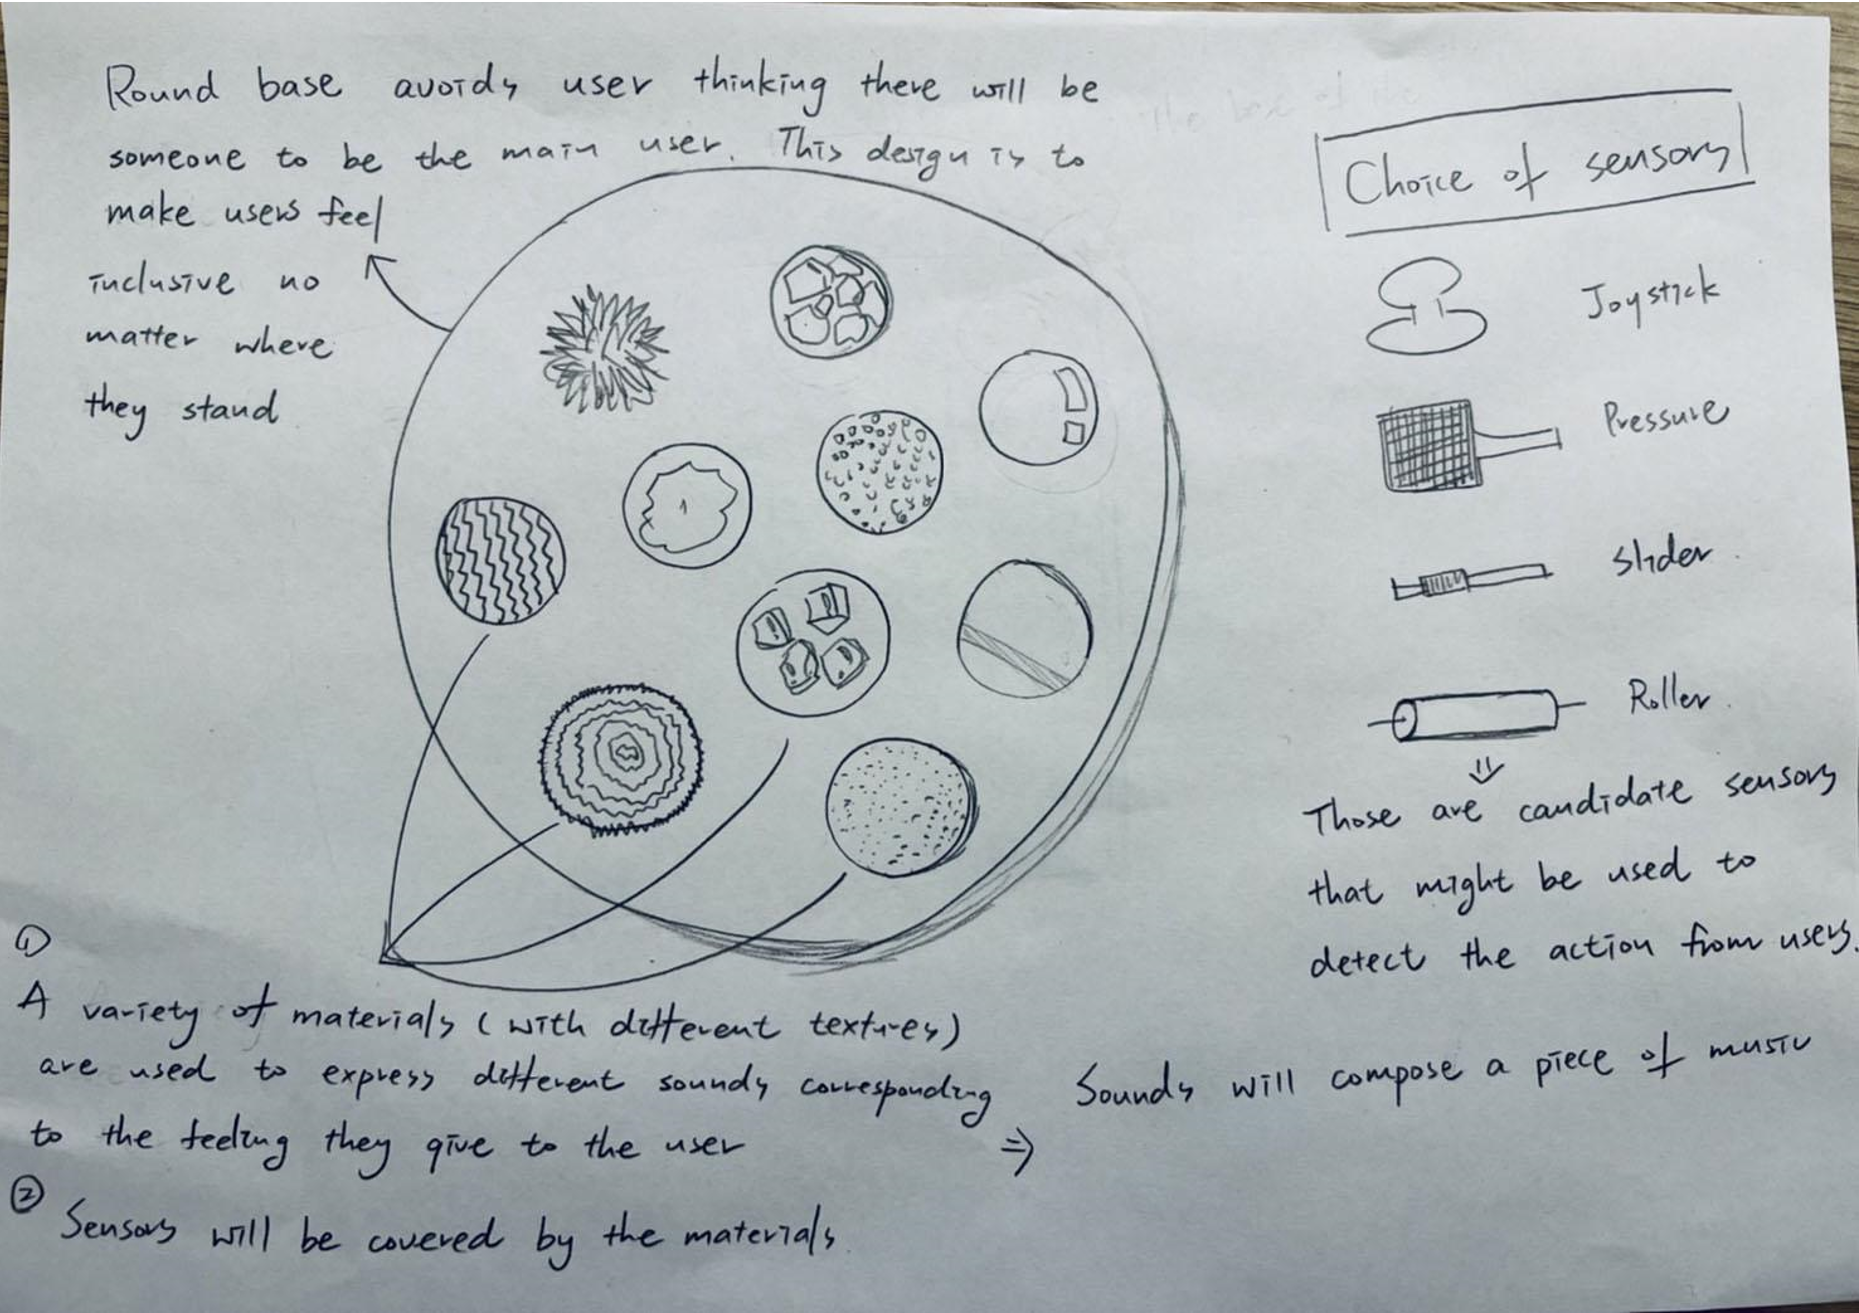 Round base avoids user thinking there will be
someone to be the main user. This design is to
make users feel
inclusive no
matter where
they stand
Choice of sensors
Joystick
Pressure
Slider
Roller
⇓
Those are candidate sensors
that might be used to
detect the action from users.
①
A variety of materials (with different textures)
are used to express different sounds corresponding
to the feeling they give to the user
⇒ Sounds will compose a piece of music
②
Sensors will be covered by the materials.